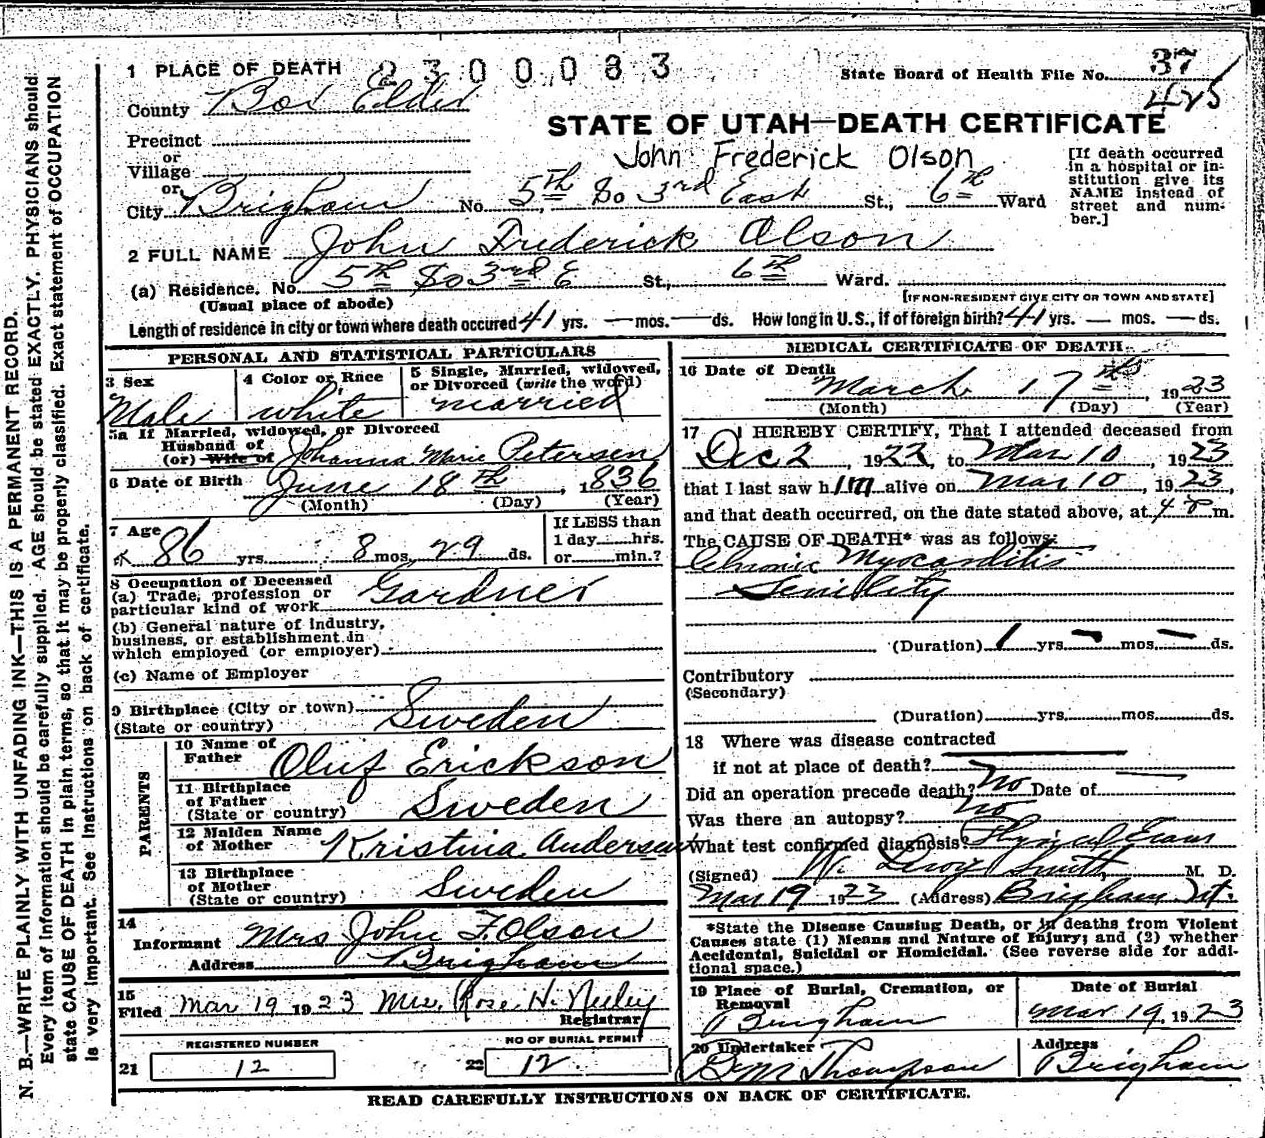 1 PLACE OF DEATH 2300083
State Board of Health File No. 37
425
County Box Elder
STATE OF UTAH—DEATH CERTIFICATE
Precinct
or
Village
or
John Frederick Olson
[If death occurred in a hospital or institution give its NAME instead of street and number.]
City Brigham No. 5th So 3rd East St., 6th Ward
2 FULL NAME John Frederick Olson
(a) Residence. No. 5th So 3rd E St., 6th Ward.
(Usual place of abode) [IF NON-RESIDENT GIVE CITY OR TOWN AND STATE]
Length of residence in city or town where death occured 41 yrs. — mos. — ds. How long in U.S., if of foreign birth? 41 yrs. — mos. — ds.
PERSONAL AND STATISTICAL PARTICULARS
3 Sex Male
4 Color or Race white
5 Single, Married, widowed, or Divorced (write the word) married
5a If Married, widowed, or Divorced
Husband of
(or) Wife of Johanna Marie Petersen
6 Date of Birth June 18th, 1836
(Month) (Day) (Year)
7 Age 86 yrs. 8 mos. 29 ds.
If LESS than
1 day......hrs.
or......min.?
8 Occupation of Deceased
(a) Trade, profession or
particular kind of work Gardner
(b) General nature of Industry,
business, or establishment in
which employed (or employer)
(c) Name of Employer
9 Birthplace (City or town)
(State or country) Sweden
PARENTS
10 Name of
Father Oluf Erickson
11 Birthplace
of Father
(State or country) Sweden
12 Maiden Name
of Mother Kristina Andersen
13 Birthplace
of Mother
(State or country) Sweden
14
Informant Mrs John F. Olson
Address Brigham
15
Filed Mar 19 1923 Mrs. Rose H. Neeley
Registrar
REGISTERED NUMBER
21 12
NO OF BURIAL PERMIT
22 12
MEDICAL CERTIFICATE OF DEATH
16 Date of Death
March 17th, 1923
(Month) (Day) (Year)
17 I HEREBY CERTIFY, That I attended deceased from
Dec 2, 1922, to Mar 10, 1923
that I last saw him alive on Mar 10, 1923,
and that death occurred, on the date stated above, at 4 m.
The CAUSE OF DEATH* was as follows:
Chronic Myocarditis
Senility
(Duration) 1 yrs — mos — ds.
Contributory
(Secondary)
(Duration) yrs. mos. ds.
18 Where was disease contracted
if not at place of death?
Did an operation precede death? No Date of
Was there an autopsy? no
What test confirmed diagnosis? Physical Exam
(Signed) W. Leroy Smith, M. D.
Mar 19 1923 (Address) Brigham Ut.
*State the Disease Causing Death, or in deaths from Violent
Causes state (1) Means and Nature of Injury; and (2) whether
Accidental, Suicidal or Homicidal. (See reverse side for addi-
tional space.)
19 Place of Burial, Cremation, or
Removal
Brigham
Date of Burial
Mar 19, 1923
20 Undertaker
Thompson
Address
Brigham
READ CAREFULLY INSTRUCTIONS ON BACK OF CERTIFICATE.
N. B.—WRITE PLAINLY WITH UNFADING INK—THIS IS A PERMANENT RECORD.
Every item of information should be carefully supplied. AGE should be stated EXACTLY. PHYSICIANS should
state CAUSE OF DEATH in plain terms, so that it may be properly classified. Exact statement of OCCUPATION
is very important. See instructions on back of certificate.